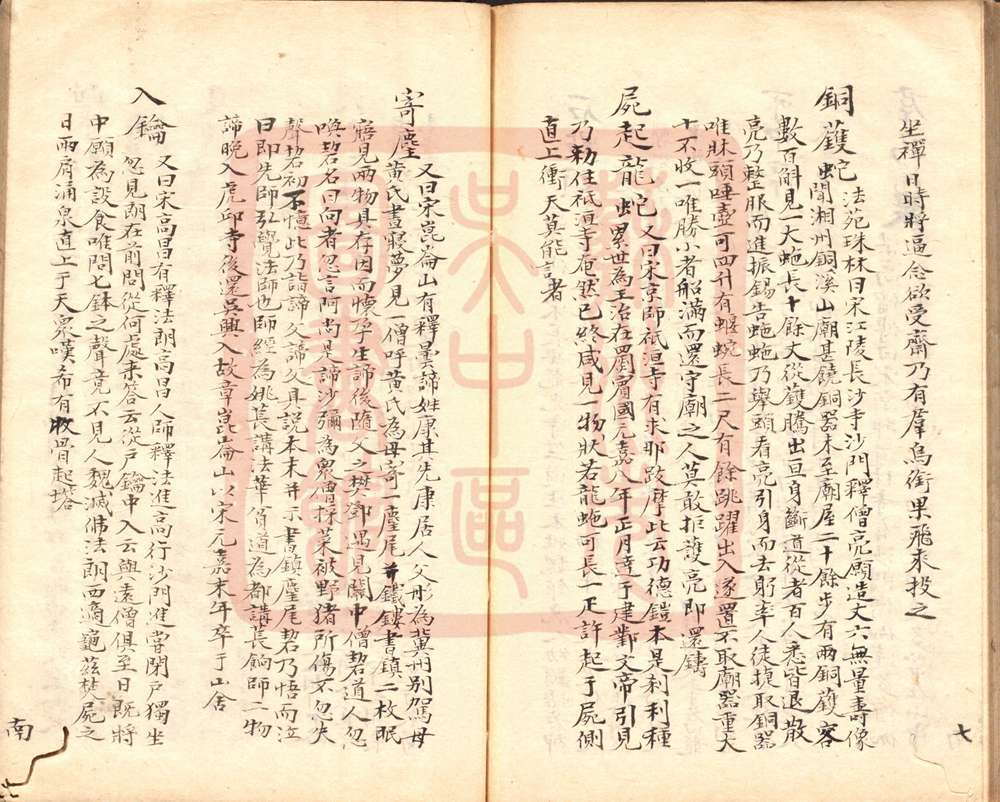 坐禪日時將逼念欲受齋乃有羣烏銜果飛來投之
銅䕶蛇　法苑珠林曰宋江陵長沙寺沙門釋僧亮願造丈六無量壽像
蚰聞湘州銅溪山廟甚饒銅器未至廟屋二十餘步有兩銅䕶容
數百斛見一大虵長十餘丈從䕶騰出亘身斷道從者百人悉皆退散
亮乃整服而進振錫告虵虵乃舉頭看亮引身而去躬率人徒捉取銅器
唯牀頭唾壺可四升有蝘蜓長二尺有餘跳躍出入遂置不取廟器重大
十不收一唯勝小者船滿而還守廟之人莫敢拒護亮即還鑄
屍起龍蛇　又曰宋京師祇洹寺有求那跋摩此云功德鎧本是剎利種
累世為王治在罽賓國元嘉八年正月達于建鄴文帝引見
乃勅住祇洹寺奄然已終咸見一物狀若龍虵可長一疋許起于屍側
直上衝天莫能詺者
寄麈　又曰宋崑崙山有釋曇諦姓康其先康居人父彤為冀州別駕母
黃氏晝寢夢見一僧呼黃氏為母寄一麈尾并鐵鏤書鎮二枚眠
寤見兩物具存因而懷孕生諦後隨父之樊鄧遇見關中僧䂮道人忽
喚䂮名曰向者忽言阿尚是諦沙彌為眾僧採菜被野猪所傷不忽失
聲䂮初不憶此乃詣諦父諦父具說本末并示書鎮麈尾䂮乃悟而泣
曰即先師弘覺法師也師經為姚萇講法華貧道為都講萇餉師二物
諦晚入虎邱寺後還吳興入故章崑崙山以宋元嘉末年卒于山舍
入鑰　又曰宋高昌有釋法朗高昌人師釋法進高行沙門進嘗閉戶獨坐
忽見朗在前問從何處來答云從戶鑰中入云與遠僧俱至日既將
中願為設食唯聞七鉢之聲竟不見人魏滅佛法朗西適龜茲焚屍之
日兩肩涌泉直上于天眾嘆希有收骨起塔
七
南